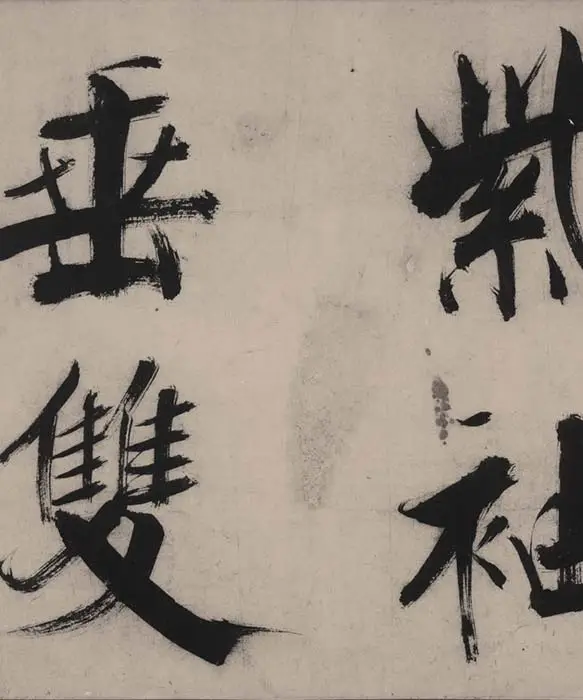 紫袖
垂雙